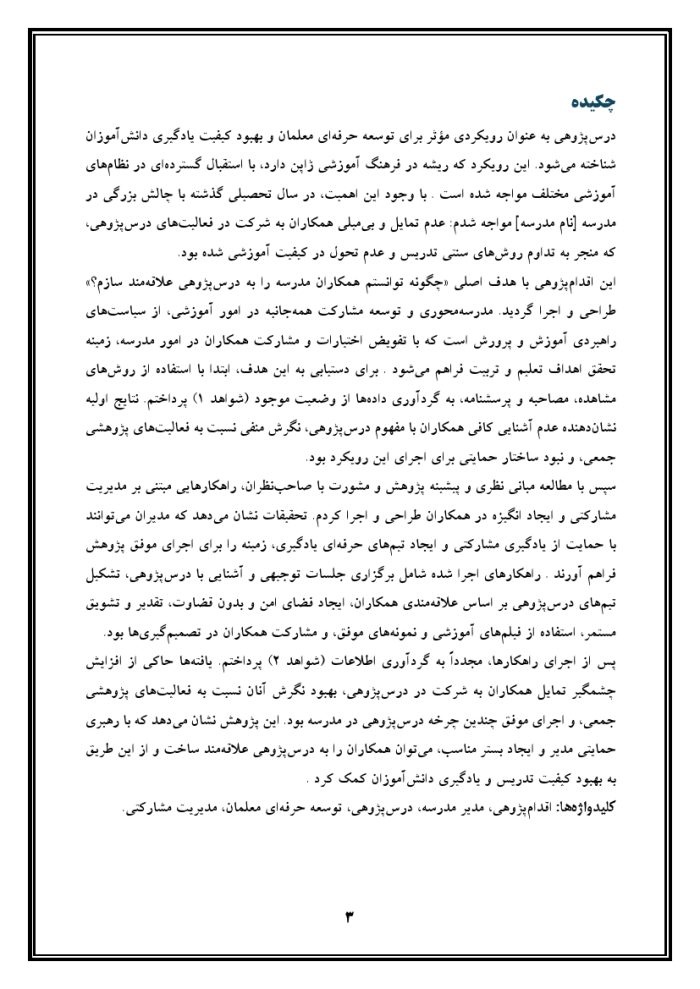 چکیده
درس‌پژوهی به عنوان رویکردی مؤثر برای توسعه حرفه‌ای معلمان و بهبود کیفیت یادگیری دانش‌آموزان
شناخته می‌شود. این رویکرد که ریشه در فرهنگ آموزشی ژاپن دارد، با استقبال گسترده‌ای در نظام‌های
آموزشی مختلف مواجه شده است . با وجود این اهمیت، در سال تحصیلی گذشته با چالش بزرگی در
مدرسه [نام مدرسه] مواجه شدم: عدم تمایل و بی‌میلی همکاران به شرکت در فعالیت‌های درس‌پژوهی،
که منجر به تداوم روش‌های سنتی تدریس و عدم تحول در کیفیت آموزشی شده بود.
این اقدام‌پژوهی با هدف اصلی «چگونه توانستم همکاران مدرسه را به درس‌پژوهی علاقه‌مند سازم؟»
طراحی و اجرا گردید. مدرسه‌محوری و توسعه مشارکت همه‌جانبه در امور آموزشی، از سیاست‌های
راهبردی آموزش و پرورش است که با تفویض اختیارات و مشارکت همکاران در امور مدرسه، زمینه
تحقق اهداف تعلیم و تربیت فراهم می‌شود . برای دستیابی به این هدف، ابتدا با استفاده از روش‌های
مشاهده، مصاحبه و پرسشنامه، به گردآوری داده‌ها از وضعیت موجود (شواهد ۱) پرداختم. نتایج اولیه
نشان‌دهنده عدم آشنایی کافی همکاران با مفهوم درس‌پژوهی، نگرش منفی نسبت به فعالیت‌های پژوهشی
جمعی، و نبود ساختار حمایتی برای اجرای این رویکرد بود.
سپس با مطالعه مبانی نظری و پیشینه پژوهش و مشورت با صاحب‌نظران، راهکارهایی مبتنی بر مدیریت
مشارکتی و ایجاد انگیزه در همکاران طراحی و اجرا کردم. تحقیقات نشان می‌دهد که مدیران می‌توانند
با حمایت از یادگیری مشارکتی و ایجاد تیم‌های حرفه‌ای یادگیری، زمینه را برای اجرای موفق پژوهش
فراهم آورند . راهکارهای اجرا شده شامل برگزاری جلسات توجیهی و آشنایی با درس‌پژوهی، تشکیل
تیم‌های درس‌پژوهی بر اساس علاقه‌مندی همکاران، ایجاد فضای امن و بدون قضاوت، تقدیر و تشویق
مستمر، استفاده از فیلم‌های آموزشی و نمونه‌های موفق، و مشارکت همکاران در تصمیم‌گیری‌ها بود.
پس از اجرای راهکارها، مجدداً به گردآوری اطلاعات (شواهد ۲) پرداختم. یافته‌ها حاکی از افزایش
چشمگیر تمایل همکاران به شرکت در درس‌پژوهی، بهبود نگرش آنان نسبت به فعالیت‌های پژوهشی
جمعی، و اجرای موفق چندین چرخه درس‌پژوهی در مدرسه بود. این پژوهش نشان می‌دهد که با رهبری
حمایتی مدیر و ایجاد بستر مناسب، می‌توان همکاران را به درس‌پژوهی علاقه‌مند ساخت و از این طریق
به بهبود کیفیت تدریس و یادگیری دانش‌آموزان کمک کرد .
کلیدواژه‌ها: اقدام‌پژوهی، مدیر مدرسه، درس‌پژوهی، توسعه حرفه‌ای معلمان، مدیریت مشارکتی.
۳